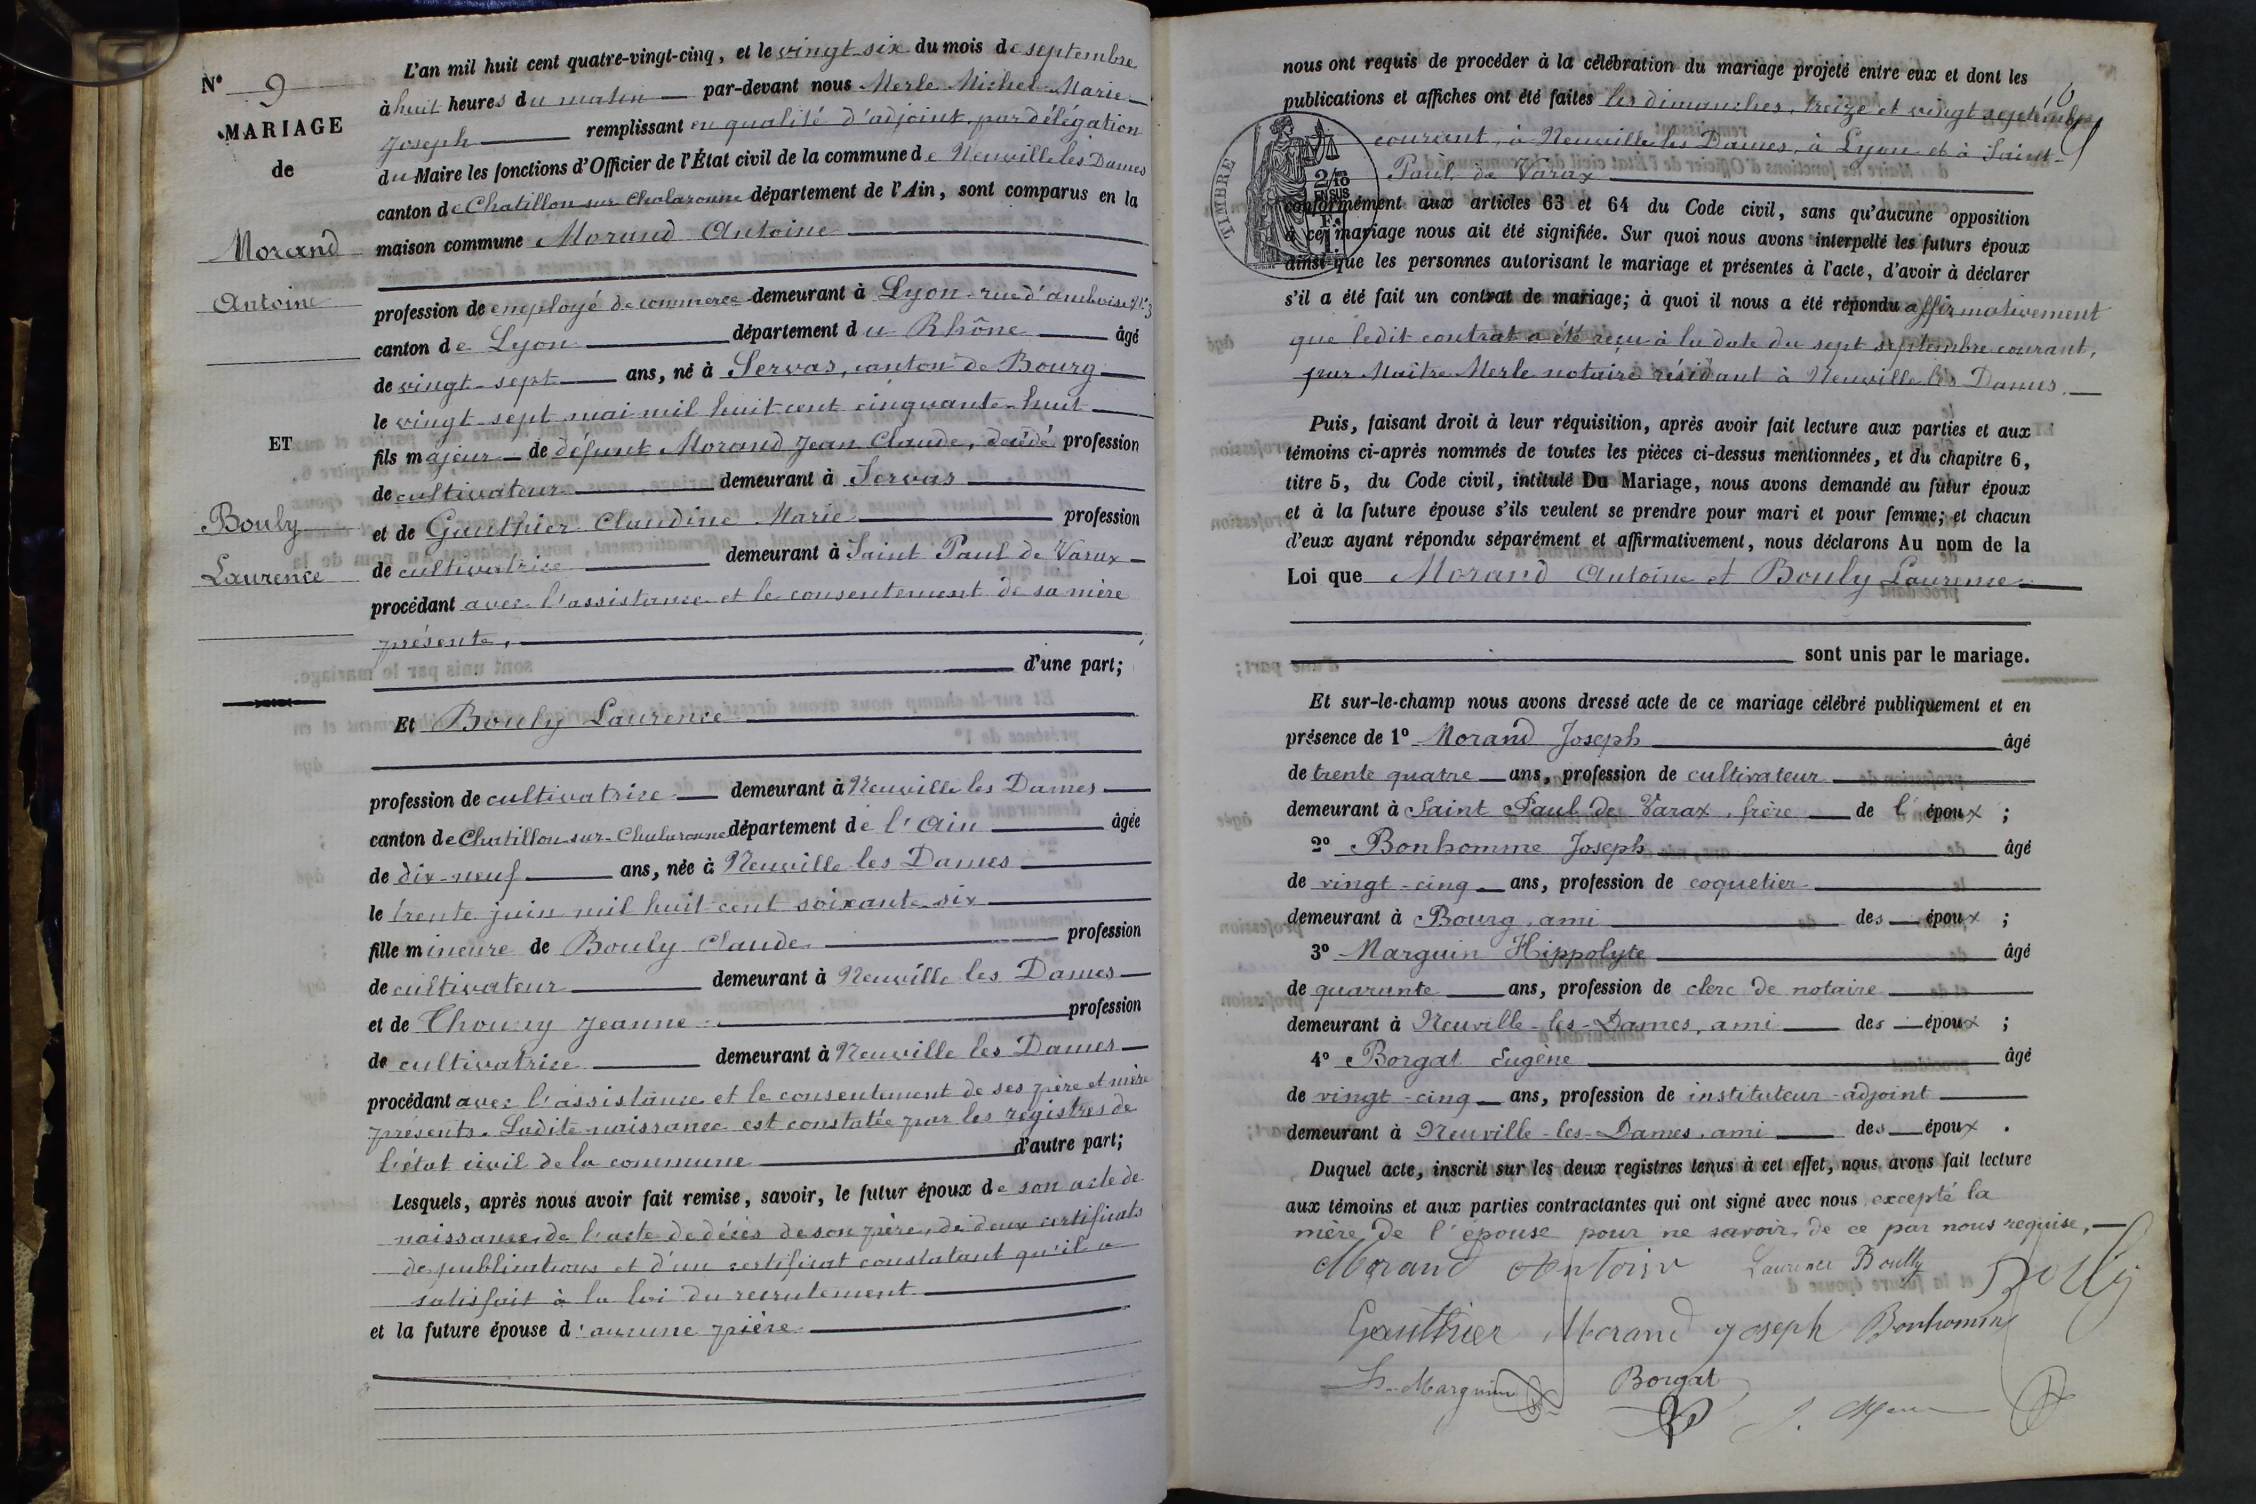 N° 9
MARIAGE
de
Morand
Antoine
ET
Bouly
Laurence
L'an mil huit cent quatre-vingt-cinq, et le vingt-six du mois de septembre
à huit heures du matin par-devant nous Merle Michel Marie
Joseph remplissant en qualité d'adjoint, par délégation
du Maire les fonctions d'Officier de l'État civil de la commune de Neuville les Dames
canton de Chatillon sur Chalaronne département de l'Ain, sont comparus en la
maison commune Morand Antoine
profession de employé de commerce demeurant à Lyon rue d'amboise N° 3
canton de Lyon département du Rhône âgé
de vingt-sept ans, né à Servas, canton de Bourg
le vingt-sept mai mil huit cent cinquante-huit
fils majeur de défunt Morand Jean Claude, décédé profession
de cultivateur demeurant à Servas
et de Gauthier Claudine Marie profession
de cultivatrice demeurant à Saint Paul de Varax
procédant avec l'assistance et le consentement de sa mère
présente,
d'une part;
Et Bouly Laurence
profession de cultivatrice demeurant à Neuville les Dames
canton de Chatillon-sur-Chalaronne département de l'Ain âgée
de dix-neuf ans, née à Neuville les Dames
le trente juin mil huit cent soixante-six
fille mineure de Bouly Claude profession
de cultivateur demeurant à Neuville les Dames
et de Jeanne profession
de cultivatrice demeurant à Neuville les Dames
procédant avec l'assistance et le consentement de ses père et mère
présents. Ladite naissance est constatée par les registres de
l'état civil de la commune d'autre part;
Lesquels, après nous avoir fait remise, savoir, le futur époux de son acte de
naissance, de l'acte de décès de son père, de deux certificats
de publications et d'un certificat constatant qu'il a
satisfait à la loi du recrutement
et la future épouse d'aucune pièce
nous ont requis de procéder à la célébration du mariage projeté entre eux et dont les
publications et affiches ont été faites les dimanches, treize et vingt septembre
courant, à Neuville les Dames, à Lyon et à Saint-
Paul de Varax
TIMBRE
2/10
EN SUS
conformément aux articles 63 et 64 du Code civil, sans qu'aucune opposition
à ce mariage nous ait été signifiée. Sur quoi nous avons interpellé les futurs époux
ainsi que les personnes autorisant le mariage et présentes à l'acte, d'avoir à déclarer
s'il a été fait un contrat de mariage; à quoi il nous a été répondu affirmativement
que ledit contrat a été reçu à la date du sept septembre courant,
par Maître Merle notaire résidant à Neuville les Dames.
Puis, faisant droit à leur réquisition, après avoir fait lecture aux parties et aux
témoins ci-après nommés de toutes les pièces ci-dessus mentionnées, et du chapitre 6,
titre 5, du Code civil, intitulé Du Mariage, nous avons demandé au futur époux
et à la future épouse s'ils veulent se prendre pour mari et pour femme; et chacun
d'eux ayant répondu séparément et affirmativement, nous déclarons Au nom de la
Loi que Morand Antoine et Bouly Laurence
sont unis par le mariage.
Et sur-le-champ nous avons dressé acte de ce mariage célébré publiquement et en
présence de 1° Morand Joseph âgé
de trente quatre ans, profession de cultivateur
demeurant à Saint Paul de Varax, frère de l'époux ;
2° Bonhomme Joseph âgé
de vingt-cinq ans, profession de coquetier
demeurant à Bourg, ami des époux ;
3° Marguin Hippolyte âgé
de quarante ans, profession de clerc de notaire
demeurant à Neuville-les-Dames, ami des époux ;
4° Borgat Eugène âgé
de vingt-cinq ans, profession de instituteur-adjoint
demeurant à Neuville-les-Dames, ami des époux .
Duquel acte, inscrit sur les deux registres tenus à cet effet, nous avons fait lecture
aux témoins et aux parties contractantes qui ont signé avec nous excepté la
mère de l'épouse pour ne savoir, de ce par nous requise.
Morand Antoine Laurence Boully Bouly
Gauthier Morand Joseph Bonhomme
H. Marguin Borgat